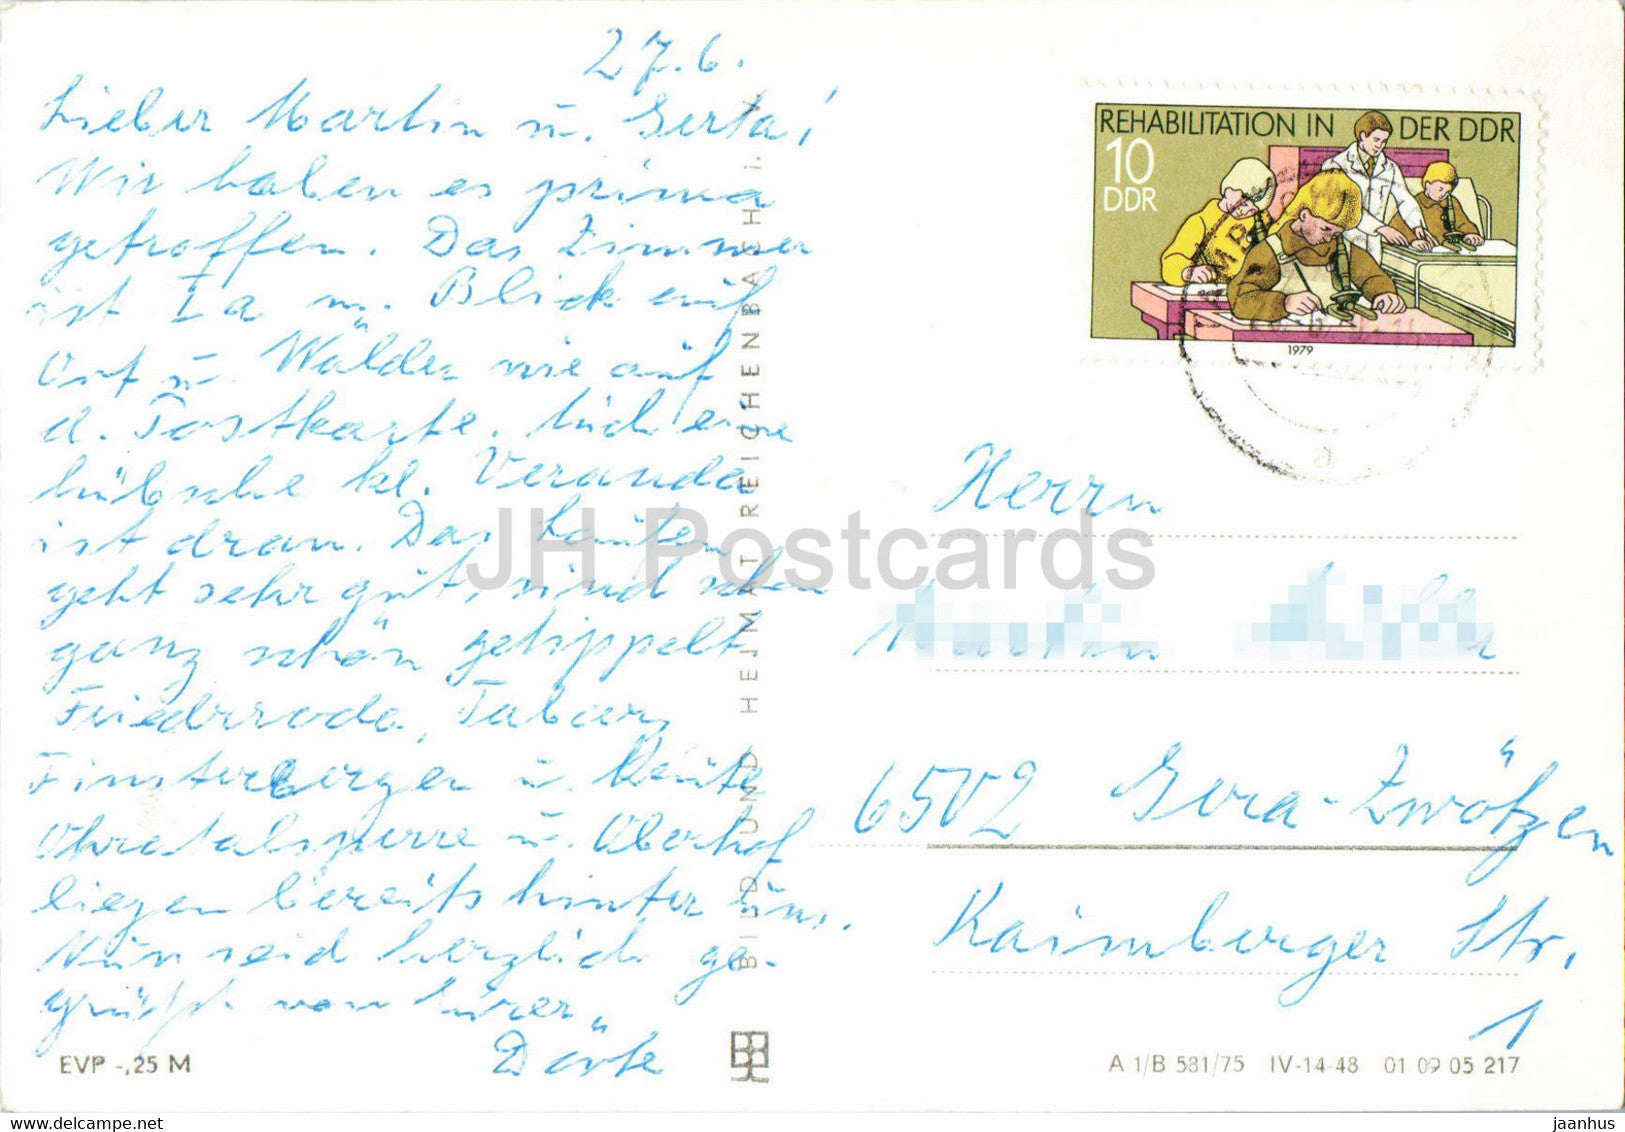 27.6.
Lieber Martin u. Gerta!
Wir haben es prima
getroffen. Das Zimmer
ist Ia m. Blick auf
Ort u. Wälder wie auf
d. Postkarte. Auch eine
hübsche kl. Veranda
ist dran. Das Laufen
geht sehr gut, sind schon
ganz schön getippelt
Friedrroda, Tabarz,
Finsterbergen u. heute
Ohratalsperre u. Oberhof
liegen bereits hinter uns.
Nun seid herzlich ge-
grüßt von Eurer
Dörte
EVP -,25 M
BILD UND HEIMAT REICHENBACH I. V.
REHABILITATION IN DER DDR
10
DDR
1979
Herrn
6502 Gera-Zwötzen
Kaimberger Str.
1
A 1/B 581/75 IV-14-48 01 09 05 217
JH Postcards
www.delcampe.net
jaanhus